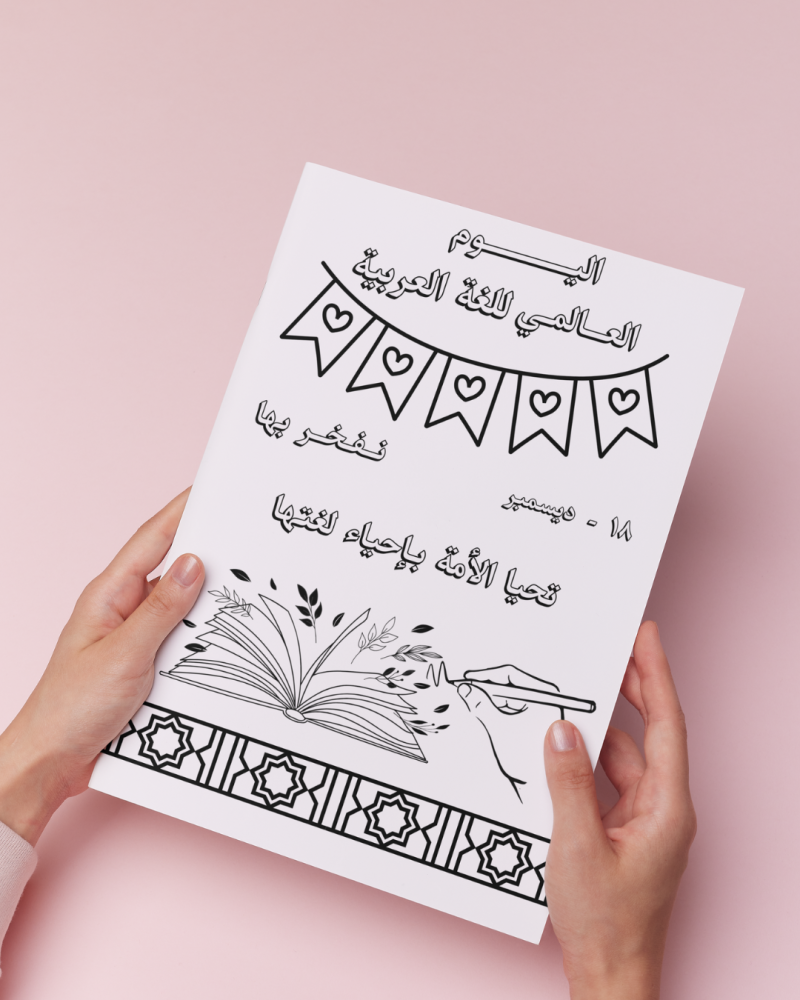 اليـــوم
العـالمـي للغة العربية
نـفـخـر بها
١٨ - ديسمبر
تحيا الأمة بإحياء لغتها